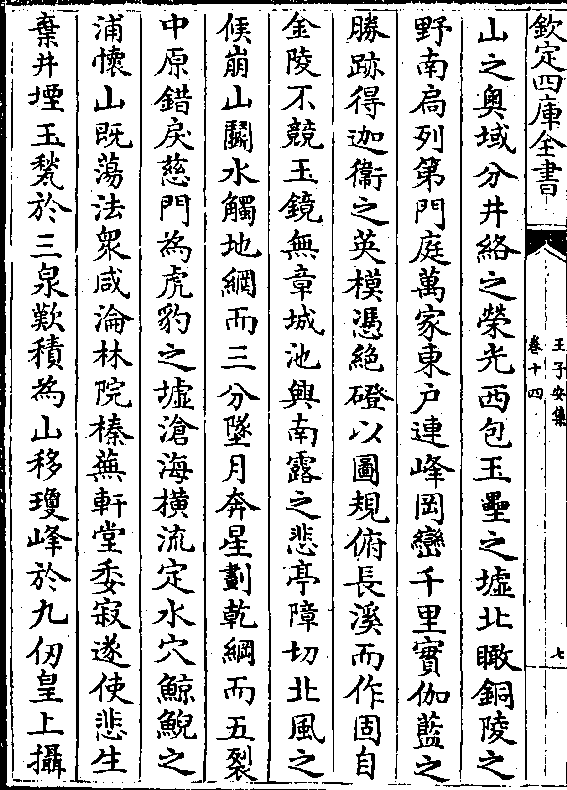 欽定四庫全書
王子安集
卷十四
七
山之奧域分井絡之榮光西包玉壘之墟北瞰銅陵之
野南扄列第門庭萬家東户連峰岡巒千里實伽藍之
勝跡得迦衞之英模憑絶磴以圖規俯長溪而作固自
金陵不競玉鏡無章城池興南露之悲亭障切北風之
候崩山鬭水觸地網而三分墜月奔星劃乾綱而五裂
中原錯戾慈門為虎豹之墟滄海橫流定水穴鯨鯢之
浦懷山既蕩法衆咸淪林院榛蕪軒堂委寂遂使悲生
棄井堙玉甃於三泉歎積為山移瓊峰於九仞皇上攝